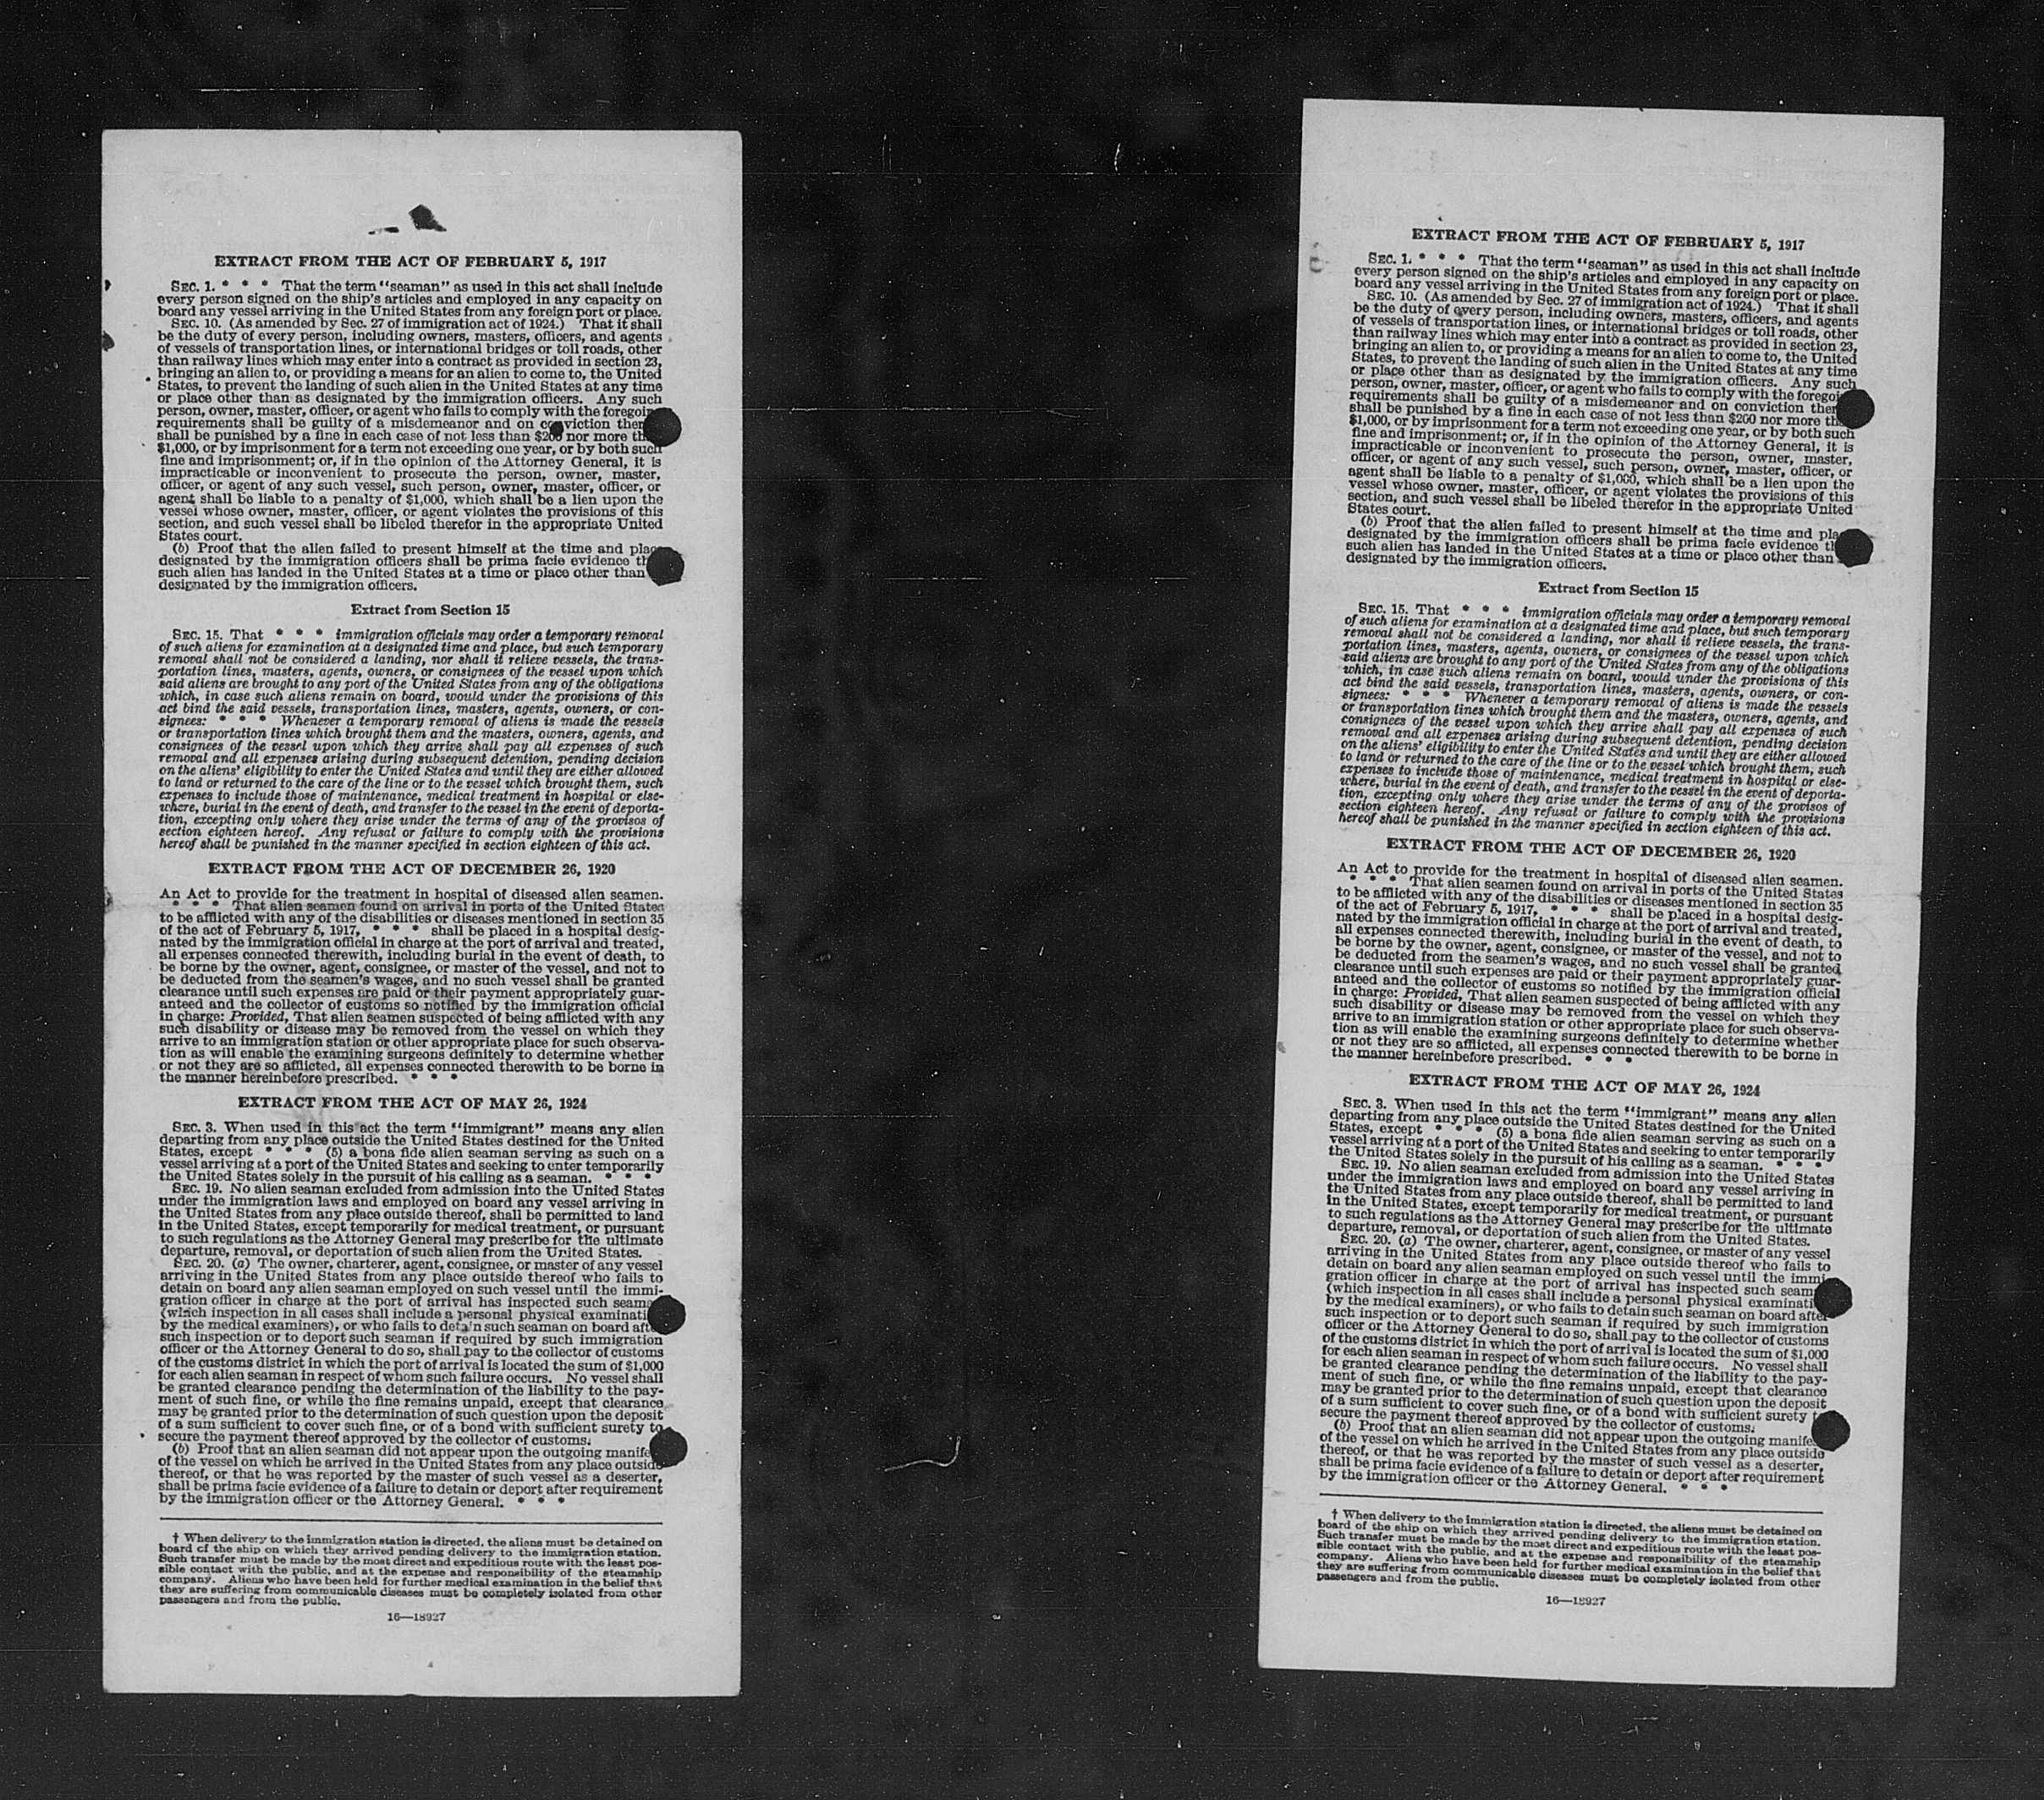 EXTRACT FROM THE ACT OF FEBRUARY 5, 1917
SEC. 1. * * * That the term "seaman" as used in this act shall include
every person signed on the ship's articles and employed in any capacity on
board any vessel arriving in the United States from any foreign port or place.
SEC. 10. (As amended by Sec. 27 of immigration act of 1924.) That it shall
be the duty of every person, including owners, masters, officers, and agents
of vessels of transportation lines, or international bridges or toll roads, other
than railway lines which may enter into a contract as provided in section 23,
bringing an alien to, or providing a means for an alien to come to, the United
States, to prevent the landing of such alien in the United States at any time
or place other than as designated by the immigration officers. Any such
person, owner, master, officer, or agent who fails to comply with the foregoin
requirements shall be guilty of a misdemeanor and on conviction ther
shall be punished by a fine in each case of not less than $200 nor more th
$1,000, or by imprisonment for a term not exceeding one year, or by both such
fine and imprisonment; or, if in the opinion of the Attorney General, it is
impracticable or inconvenient to prosecute the person, owner, master,
officer, or agent of any such vessel, such person, owner, master, officer, or
agent shall be liable to a penalty of $1,000, which shall be a lien upon the
vessel whose owner, master, officer, or agent violates the provisions of this
section, and such vessel shall be libeled therefor in the appropriate United
States court.
(b) Proof that the alien failed to present himself at the time and plac
designated by the immigration officers shall be prima facie evidence th
such alien has landed in the United States at a time or place other than
designated by the immigration officers.
Extract from Section 15
SEC. 15. That * * * immigration officials may order a temporary removal
of such aliens for examination at a designated time and place, but such temporary
removal shall not be considered a landing, nor shall it relieve vessels, the trans-
portation lines, masters, agents, owners, or consignees of the vessel upon which
said aliens are brought to any port of the United States from any of the obligations
which, in case such aliens remain on board, would under the provisions of this
act bind the said vessels, transportation lines, masters, agents, owners, or con-
signees: * * * Whenever a temporary removal of aliens is made the vessels
or transportation lines which brought them and the masters, owners, agents, and
consignees of the vessel upon which they arrive shall pay all expenses of such
removal and all expenses arising during subsequent detention, pending decision
on the aliens' eligibility to enter the United States and until they are either allowed
to land or returned to the care of the line or to the vessel which brought them, such
expenses to include those of maintenance, medical treatment in hospital or else-
where, burial in the event of death, and transfer to the vessel in the event of deporta-
tion, excepting only where they arise under the terms of any of the provisos of
section eighteen hereof. Any refusal or failure to comply with the provisions
hereof shall be punished in the manner specified in section eighteen of this act.
EXTRACT FROM THE ACT OF DECEMBER 26, 1920
An Act to provide for the treatment in hospital of diseased alien seamen.
* * * That alien seamen found on arrival in ports of the United States
to be afflicted with any of the disabilities or diseases mentioned in section 35
of the act of February 5, 1917, * * * shall be placed in a hospital desig-
nated by the immigration official in charge at the port of arrival and treated,
all expenses connected therewith, including burial in the event of death, to
be borne by the owner, agent, consignee, or master of the vessel, and not to
be deducted from the seamen's wages, and no such vessel shall be granted
clearance until such expenses are paid or their payment appropriately guar-
anteed and the collector of customs so notified by the immigration official
in charge: Provided, That alien seamen suspected of being afflicted with any
such disability or disease may be removed from the vessel on which they
arrive to an immigration station or other appropriate place for such observa-
tion as will enable the examining surgeons definitely to determine whether
or not they are so afflicted, all expenses connected therewith to be borne in
the manner hereinbefore prescribed. * * *
EXTRACT FROM THE ACT OF MAY 26, 1924
SEC. 3. When used in this act the term "immigrant" means any alien
departing from any place outside the United States destined for the United
States, except * * * (5) a bona fide alien seaman serving as such on a
vessel arriving at a port of the United States and seeking to enter temporarily
the United States solely in the pursuit of his calling as a seaman. * * *
SEC. 19. No alien seaman excluded from admission into the United States
under the immigration laws and employed on board any vessel arriving in
the United States from any place outside thereof, shall be permitted to land
in the United States, except temporarily for medical treatment, or pursuant
to such regulations as the Attorney General may prescribe for the ultimate
departure, removal, or deportation of such alien from the United States.
SEC. 20. (a) The owner, charterer, agent, consignee, or master of any vessel
arriving in the United States from any place outside thereof who fails to
detain on board any alien seaman employed on such vessel until the immi-
gration officer in charge at the port of arrival has inspected such seama
(which inspection in all cases shall include a personal physical examinati
by the medical examiners), or who fails to detain such seaman on board afte
such inspection or to deport such seaman if required by such immigration
officer or the Attorney General to do so, shall pay to the collector of customs
of the customs district in which the port of arrival is located the sum of $1,000
for each alien seaman in respect of whom such failure occurs. No vessel shall
be granted clearance pending the determination of the liability to the pay-
ment of such fine, or while the fine remains unpaid, except that clearance
may be granted prior to the determination of such question upon the deposit
of a sum sufficient to cover such fine, or of a bond with sufficient surety to
secure the payment thereof approved by the collector of customs.
(b) Proof that an alien seaman did not appear upon the outgoing manife
of the vessel on which he arrived in the United States from any place outside
thereof, or that he was reported by the master of such vessel as a deserter,
shall be prima facie evidence of a failure to detain or deport after requirement
by the immigration officer or the Attorney General. * * *
† When delivery to the immigration station is directed, the aliens must be detained on
board of the ship on which they arrived pending delivery to the immigration station.
Such transfer must be made by the most direct and expeditious route with the least pos-
sible contact with the public, and at the expense and responsibility of the steamship
company. Aliens who have been held for further medical examination in the belief that
they are suffering from communicable diseases must be completely isolated from other
passengers and from the public.
16—18927
EXTRACT FROM THE ACT OF FEBRUARY 5, 1917
SEC. 1. * * * That the term "seaman" as used in this act shall include
every person signed on the ship's articles and employed in any capacity on
board any vessel arriving in the United States from any foreign port or place.
SEC. 10. (As amended by Sec. 27 of immigration act of 1924.) That it shall
be the duty of every person, including owners, masters, officers, and agents
of vessels of transportation lines, or international bridges or toll roads, other
than railway lines which may enter into a contract as provided in section 23,
bringing an alien to, or providing a means for an alien to come to, the United
States, to prevent the landing of such alien in the United States at any time
or place other than as designated by the immigration officers. Any such
person, owner, master, officer, or agent who fails to comply with the foregoi
requirements shall be guilty of a misdemeanor and on conviction ther
shall be punished by a fine in each case of not less than $200 nor more th
$1,000, or by imprisonment for a term not exceeding one year, or by both such
fine and imprisonment; or, if in the opinion of the Attorney General, it is
impracticable or inconvenient to prosecute the person, owner, master,
officer, or agent of any such vessel, such person, owner, master, officer, or
agent shall be liable to a penalty of $1,000, which shall be a lien upon the
vessel whose owner, master, officer, or agent violates the provisions of this
section, and such vessel shall be libeled therefor in the appropriate United
States court.
(b) Proof that the alien failed to present himself at the time and pla
designated by the immigration officers shall be prima facie evidence th
such alien has landed in the United States at a time or place other than
designated by the immigration officers.
Extract from Section 15
SEC. 15. That * * * immigration officials may order a temporary removal
of such aliens for examination at a designated time and place, but such temporary
removal shall not be considered a landing, nor shall it relieve vessels, the trans-
portation lines, masters, agents, owners, or consignees of the vessel upon which
said aliens are brought to any port of the United States from any of the obligations
which, in case such aliens remain on board, would under the provisions of this
act bind the said vessels, transportation lines, masters, agents, owners, or con-
signees: * * * Whenever a temporary removal of aliens is made the vessels
or transportation lines which brought them and the masters, owners, agents, and
consignees of the vessel upon which they arrive shall pay all expenses of such
removal and all expenses arising during subsequent detention, pending decision
on the aliens' eligibility to enter the United States and until they are either allowed
to land or returned to the care of the line or to the vessel which brought them, such
expenses to include those of maintenance, medical treatment in hospital or else-
where, burial in the event of death, and transfer to the vessel in the event of deporta-
tion, excepting only where they arise under the terms of any of the provisos of
section eighteen hereof. Any refusal or failure to comply with the provisions
hereof shall be punished in the manner specified in section eighteen of this act.
EXTRACT FROM THE ACT OF DECEMBER 26, 1920
An Act to provide for the treatment in hospital of diseased alien seamen.
* * * That alien seamen found on arrival in ports of the United States
to be afflicted with any of the disabilities or diseases mentioned in section 35
of the act of February 5, 1917, * * * shall be placed in a hospital desig-
nated by the immigration official in charge at the port of arrival and treated,
all expenses connected therewith, including burial in the event of death, to
be borne by the owner, agent, consignee, or master of the vessel, and not to
be deducted from the seamen's wages, and no such vessel shall be granted
clearance until such expenses are paid or their payment appropriately guar-
anteed and the collector of customs so notified by the immigration official
in charge: Provided, That alien seamen suspected of being afflicted with any
such disability or disease may be removed from the vessel on which they
arrive to an immigration station or other appropriate place for such observa-
tion as will enable the examining surgeons definitely to determine whether
or not they are so afflicted, all expenses connected therewith to be borne in
the manner hereinbefore prescribed. * * *
EXTRACT FROM THE ACT OF MAY 26, 1924
SEC. 3. When used in this act the term "immigrant" means any alien
departing from any place outside the United States destined for the United
States, except * * * (5) a bona fide alien seaman serving as such on a
vessel arriving at a port of the United States and seeking to enter temporarily
the United States solely in the pursuit of his calling as a seaman. * * *
SEC. 19. No alien seaman excluded from admission into the United States
under the immigration laws and employed on board any vessel arriving in
the United States from any place outside thereof, shall be permitted to land
in the United States, except temporarily for medical treatment, or pursuant
to such regulations as the Attorney General may prescribe for the ultimate
departure, removal, or deportation of such alien from the United States.
SEC. 20. (a) The owner, charterer, agent, consignee, or master of any vessel
arriving in the United States from any place outside thereof who fails to
detain on board any alien seaman employed on such vessel until the immi-
gration officer in charge at the port of arrival has inspected such seam
(which inspection in all cases shall include a personal physical examinati
by the medical examiners), or who fails to detain such seaman on board after
such inspection or to deport such seaman if required by such immigration
officer or the Attorney General to do so, shall pay to the collector of customs
of the customs district in which the port of arrival is located the sum of $1,000
for each alien seaman in respect of whom such failure occurs. No vessel shall
be granted clearance pending the determination of the liability to the pay-
ment of such fine, or while the fine remains unpaid, except that clearance
may be granted prior to the determination of such question upon the deposit
of a sum sufficient to cover such fine, or of a bond with sufficient surety t
secure the payment thereof approved by the collector of customs.
(b) Proof that an alien seaman did not appear upon the outgoing manife
of the vessel on which he arrived in the United States from any place outside
thereof, or that he was reported by the master of such vessel as a deserter,
shall be prima facie evidence of a failure to detain or deport after requirement
by the immigration officer or the Attorney General. * * *
† When delivery to the immigration station is directed, the aliens must be detained on
board of the ship on which they arrived pending delivery to the immigration station.
Such transfer must be made by the most direct and expeditious route with the least pos-
sible contact with the public, and at the expense and responsibility of the steamship
company. Aliens who have been held for further medical examination in the belief that
they are suffering from communicable diseases must be completely isolated from other
passengers and from the public.
16—18927